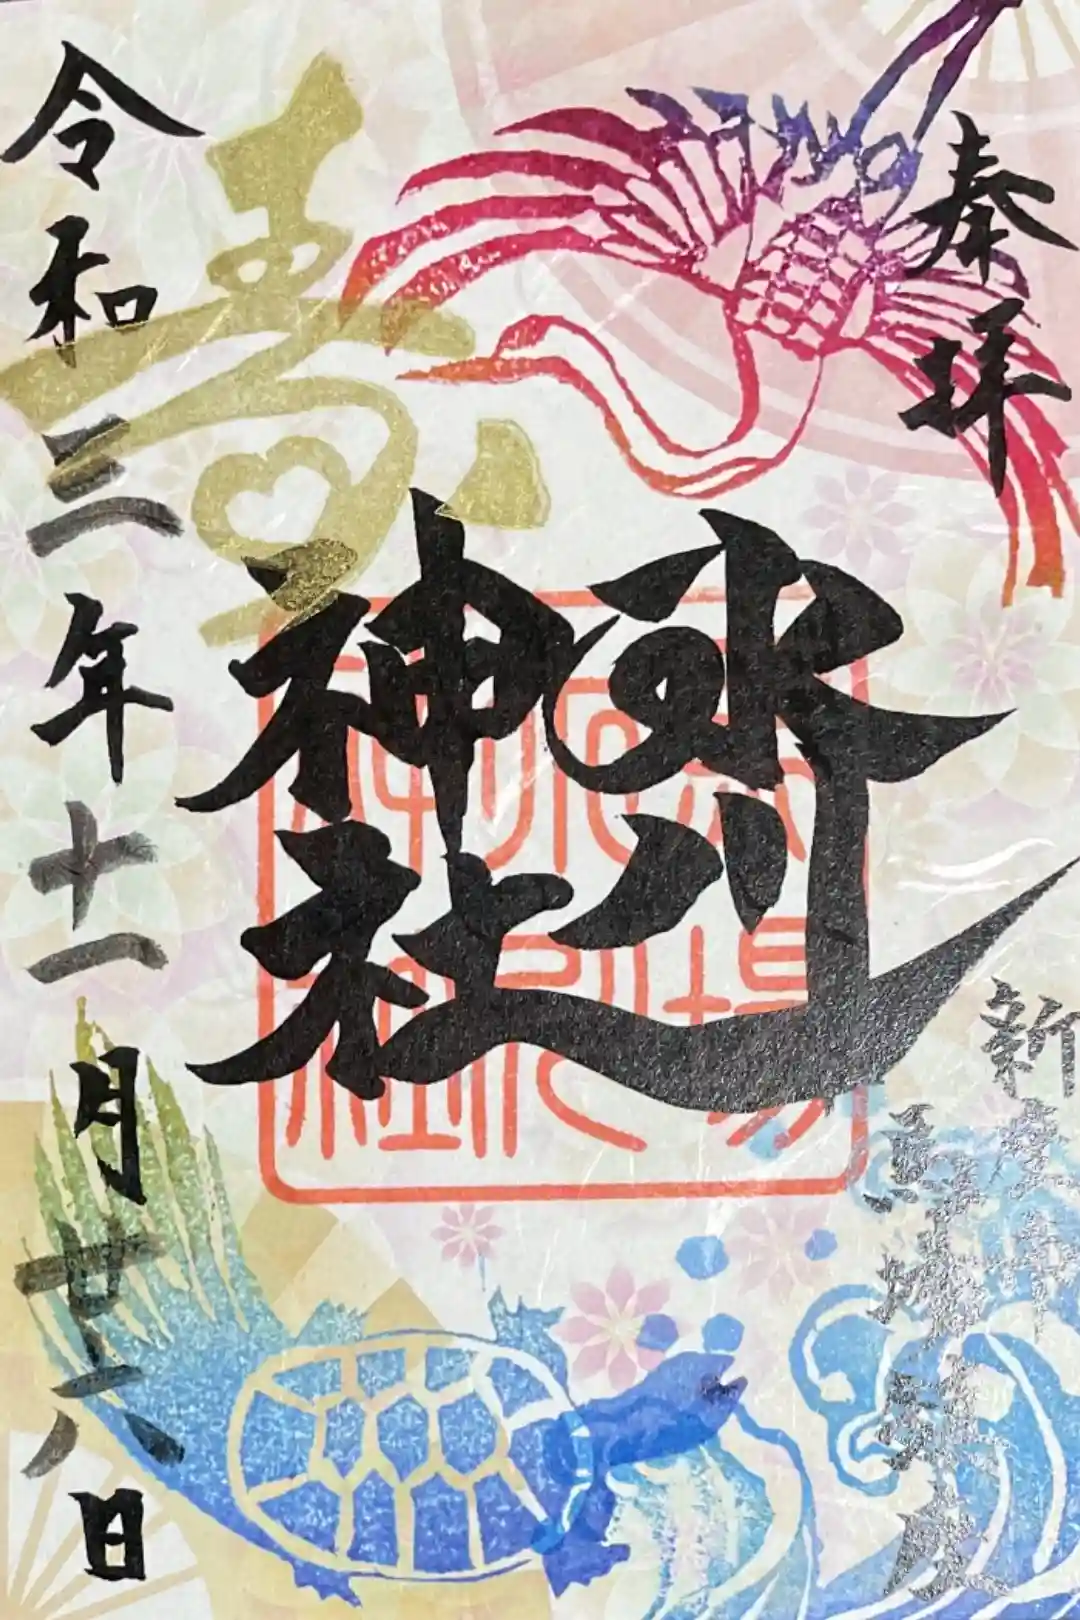 奉拝
氷川
神社
寿
令和三年十一月廿六日